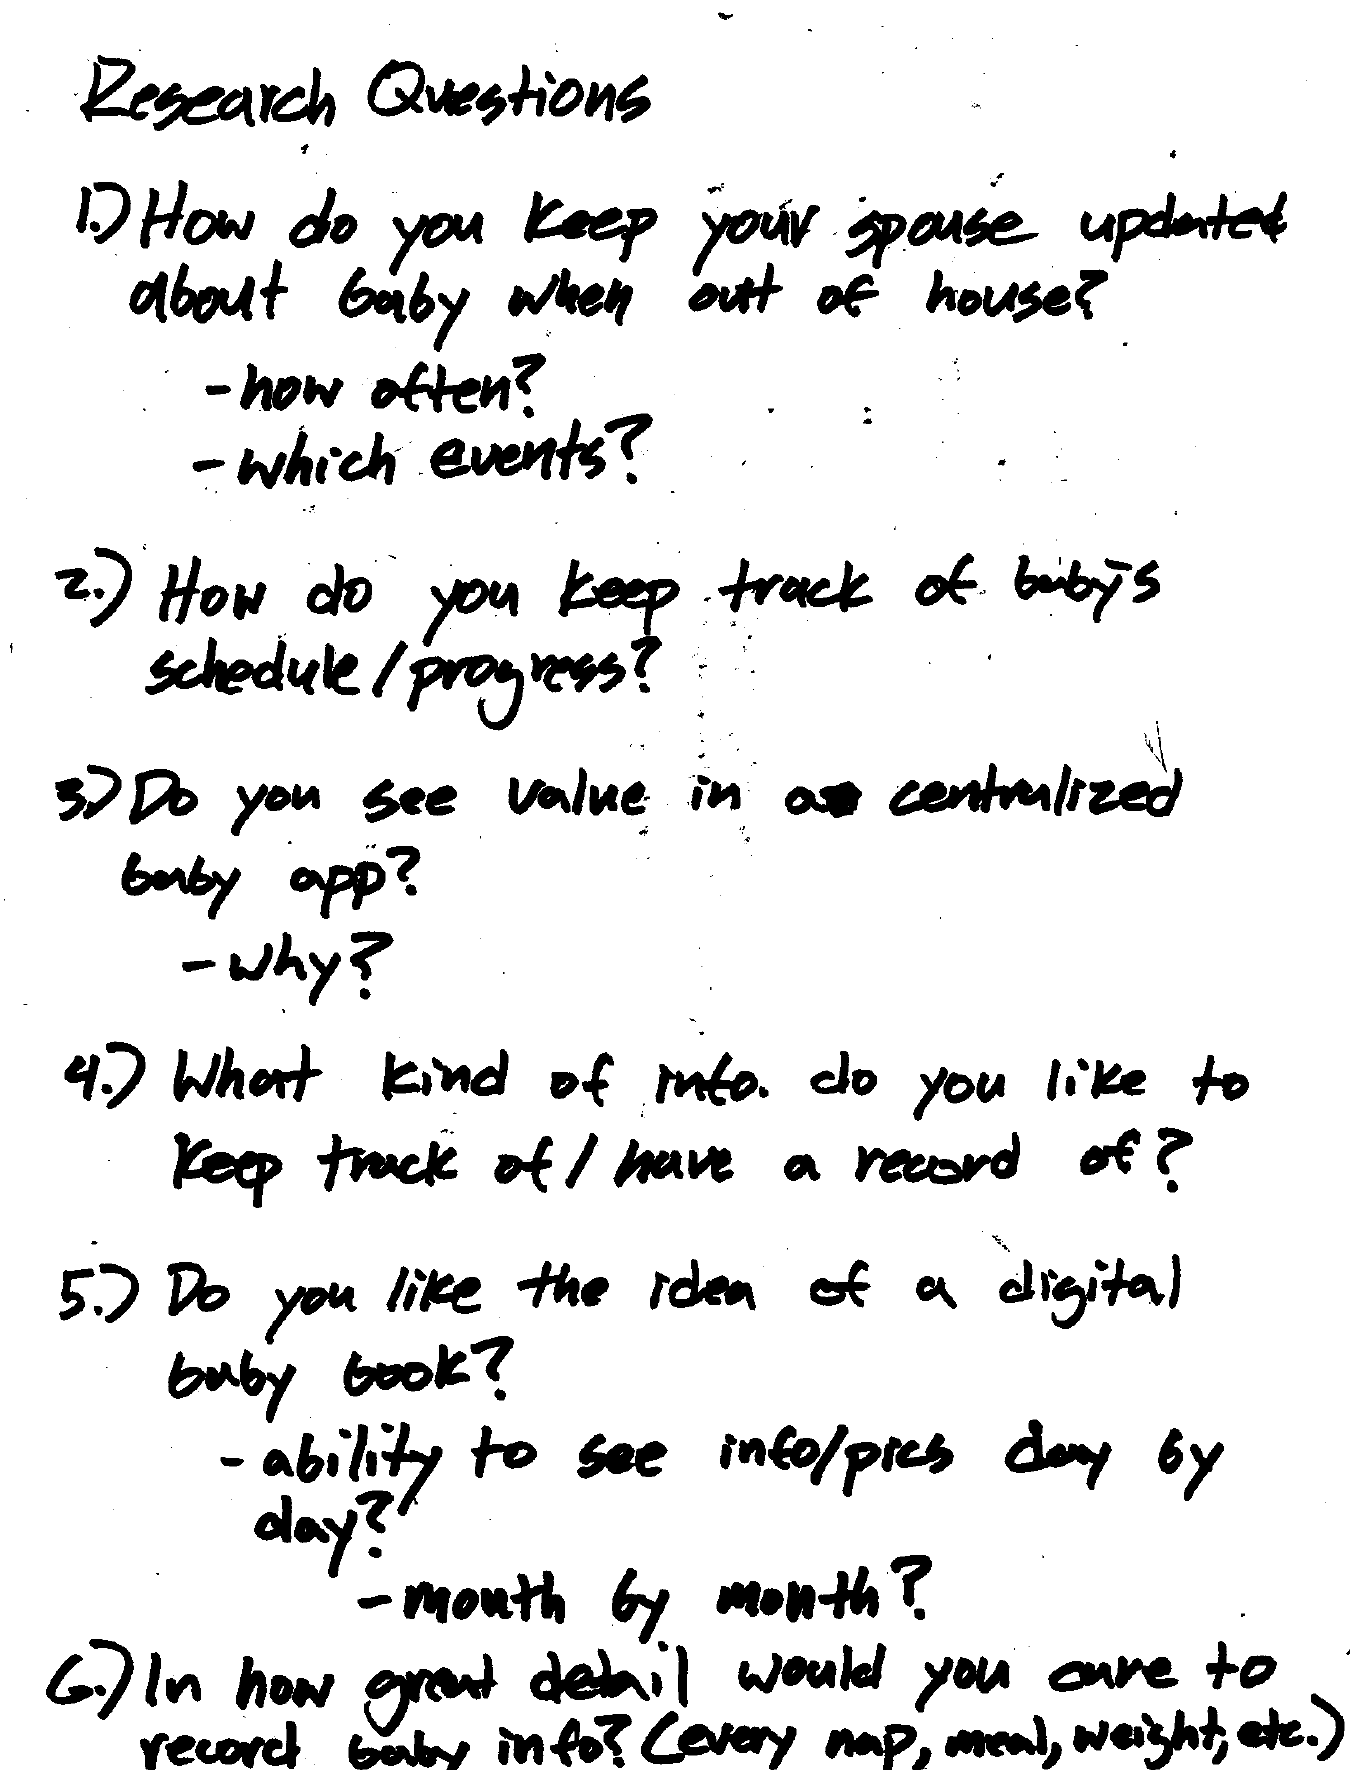 Research Questions
1.) How do you keep your spouse updated
about baby when out of house?
- how often?
- which events?
2.) How do you keep track of baby's
schedule/progress?
3.) Do you see value in a centralized
baby app?
- why?
4.) What kind of info. do you like to
keep track of/have a record of?
5.) Do you like the idea of a digital
baby book?
- ability to see info/pics day by
day?
- month by month?
6.) In how great detail would you care to
record baby info? (every nap, meal, weight, etc.)